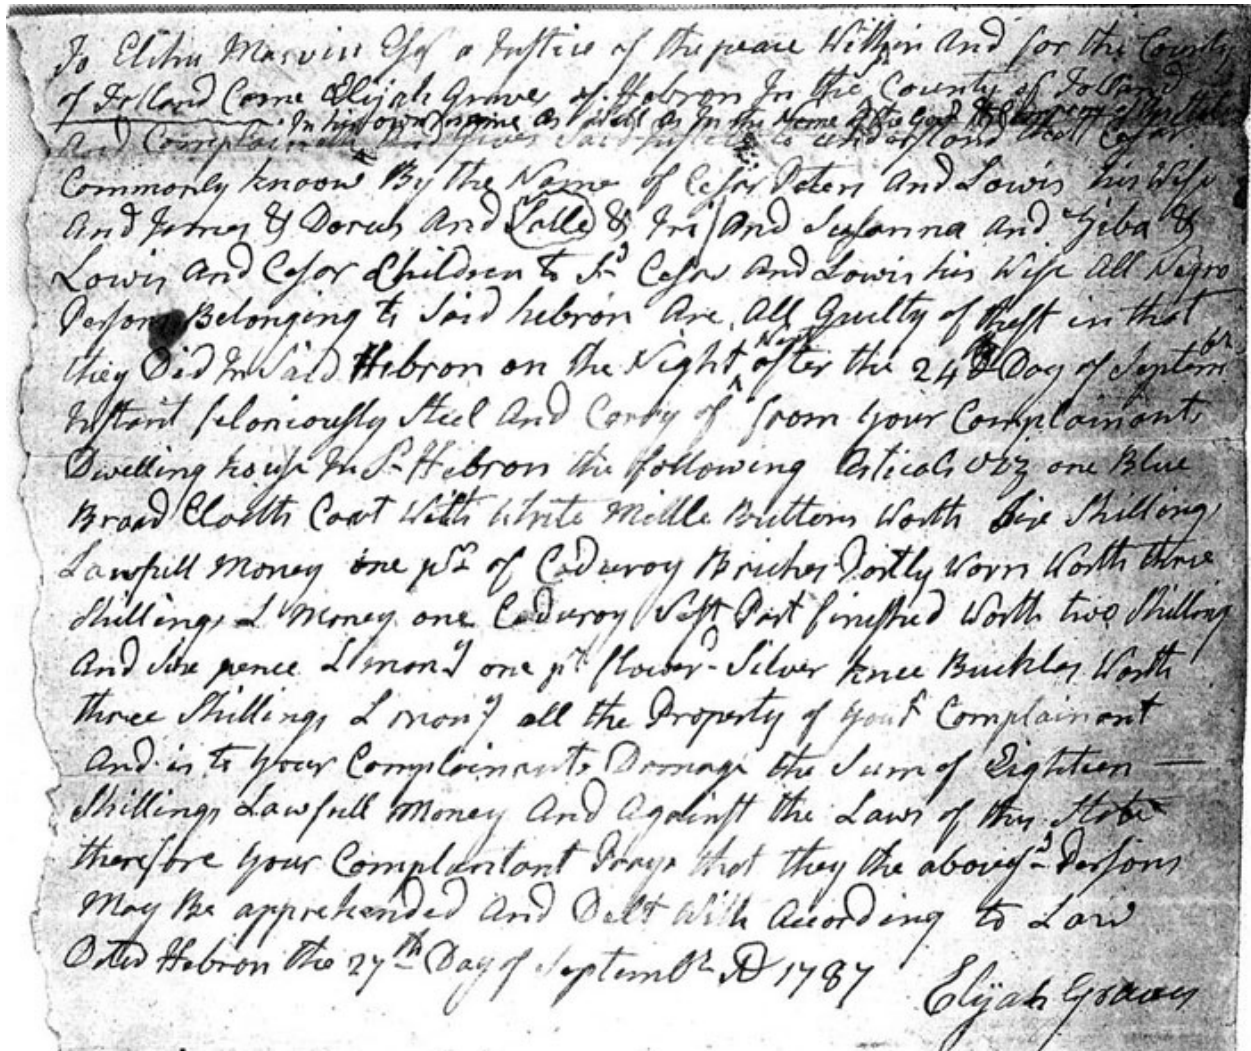 To Elihu Marvin Esqr a Justice of the peace Within And for the County
of Tolland Come Elijah Graves of Hebron In the County of Tolland
In his own name as Well as In the Name of the
And Complain And Gives Said Justice to understand that Cesar
Commonly know By the Name of Cesar Peters And Lowis his Wife
And James & Dorcus And Salle & Iri And Susanna and Ziba &
Lowis And Cesar Children to Sd Cesar And Lowis his Wife All Negro
Persons Belonging to Said hebron Are All Guilty of theft in that
they Did In Said Hebron on the Night Next after the 24th Day of Septembr
Instant feloniously Steel And Carry of from your Complainants
Dwelling house In Sd Hebron the following Articals viz one Blue
Broad Cloath Coat With White Mittle Buttons Worth Shillings
Lawfull Money one pr of Coduroy Briches Partly Worn Worth three
Shillings L Money one Coduroy Vest Part finished Worth two Shilling
And Six pence L mony one pr flowerd Silver knee Buckles Worth
three Shillings L mony all the Property of your Complainant
And is to your Complainants Damage the Sum of Eighteen —
Shillings Lawfull Money And Against the Laws of this State
therefore your Complantant Prays that they the above sd Persons
May Be apprehended And Delt With According to Law
Dated Hebron the 27th Day of Septembr AD 1787
Elijah Graves